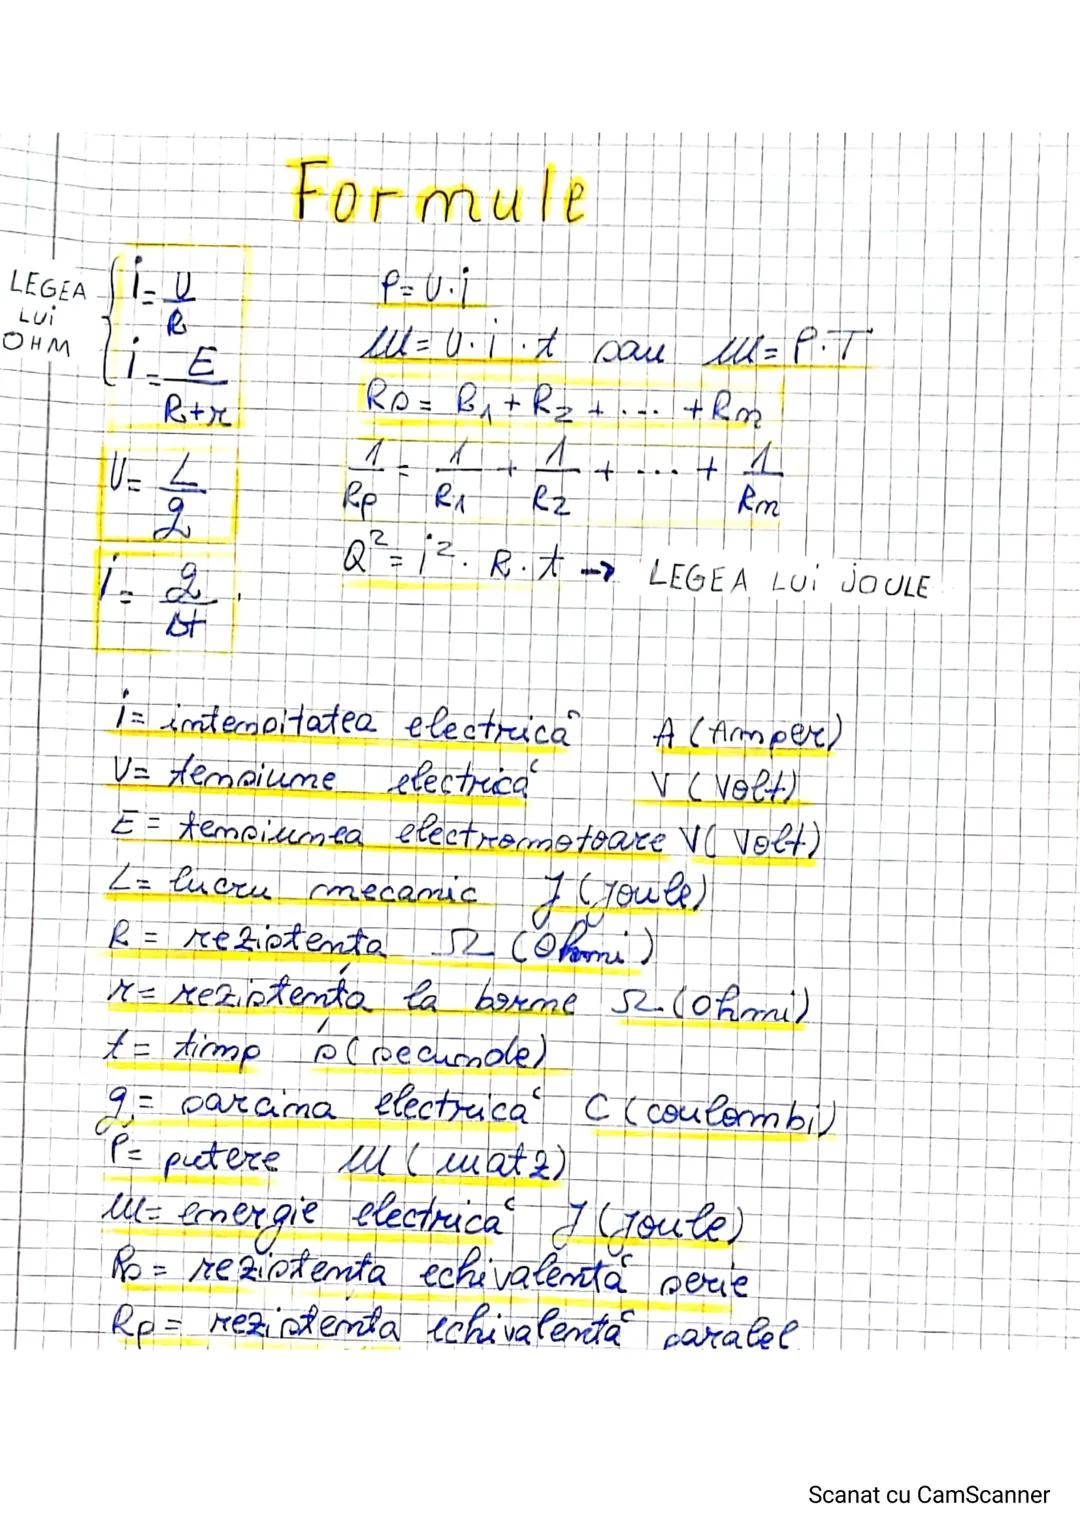 Formule
LEGEA LUI OHM
i = U/R
i = E/R+r
U = L/q
i = q/Δt
P = U·i
W = U·i·t sau W = P·T
Rs = R1 + R2 + ... + Rn
1/Rp = 1/R1 + 1/R2 + ... + 1/Rn
Q² = i²·R·t → LEGEA LUI JOULE
i = intensitatea electrică A (Amper)
U = tensiune electrică V (Volt)
E = tensiunea electromotoare V (Volt)
L = lucru mecanic J (Joule)
R = rezistenta Ω (Ohmi)
r = rezistența la borne Ω (Ohmi)
t = timp s (secunde)
q = sarcina electrică C (coulombi)
P = putere W (watz)
W = energie electrică J (Joule)
Rs = rezistenta echivalentă serie
Rp = rezistenta echivalentă paralel
Scanat cu CamScanner